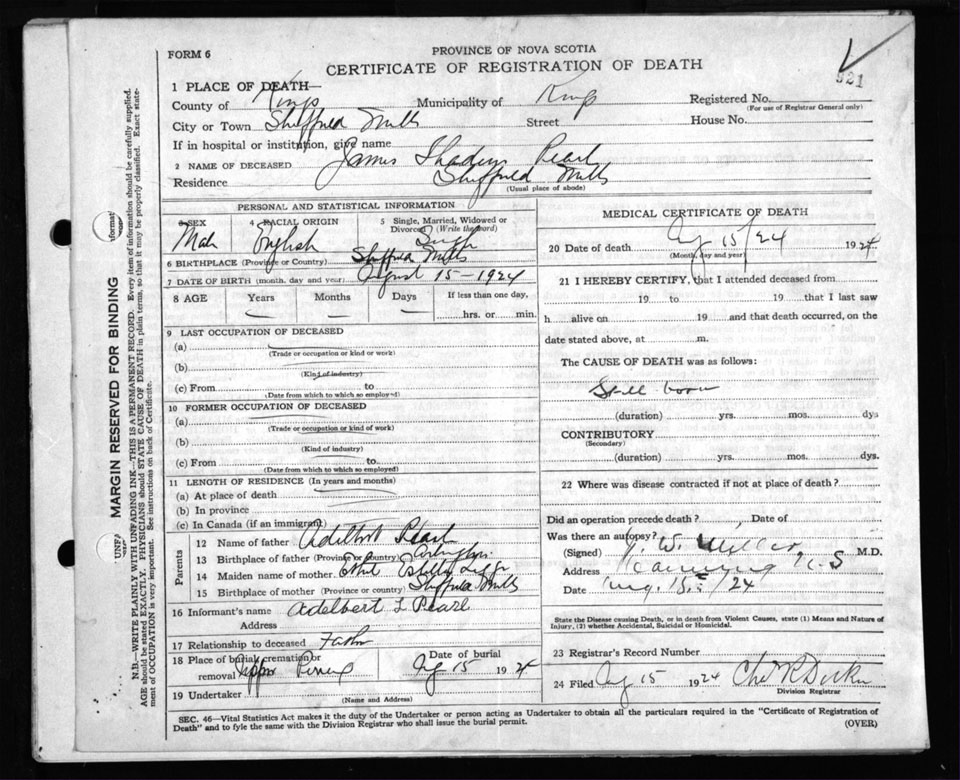 FORM 6
PROVINCE OF NOVA SCOTIA
CERTIFICATE OF REGISTRATION OF DEATH
921
1 PLACE OF DEATH—
County of Kings Municipality of Kings Registered No.
(For use of Registrar General only)
City or Town Sheffield Mills Street House No.
If in hospital or institution, give name
2 NAME OF DECEASED James Pearl
Residence Sheffield Mills
(Usual place of abode)
PERSONAL AND STATISTICAL INFORMATION
3 SEX 4 RACIAL ORIGIN 5 Single, Married, Widowed or Divorced (Write the word)
Male English Single
6 BIRTHPLACE (Province or Country) Sheffield Mills
7 DATE OF BIRTH (month, day and year) August 15-1924
8 AGE Years Months Days If less than one day,
— — — hrs. or min.
9 LAST OCCUPATION OF DECEASED
(a)
(Trade or occupation or kind or work)
(b)
(Kind of industry)
(c) From to
(Date from which to which so employed)
10 FORMER OCCUPATION OF DECEASED
(a)
(Trade or occupation or kind of work)
(b)
(Kind of industry)
(c) From to
(Date from which to which so employed)
11 LENGTH OF RESIDENCE (In years and months)
(a) At place of death
(b) In province
(c) In Canada (if an immigrant)
Parents
12 Name of father Adelbert Pearl
13 Birthplace of father (Province or country) Arlington
14 Maiden name of mother Ethel Estella
15 Birthplace of mother (Province or country) Sheffield Mills
16 Informant's name Adelbert L Pearl
Address
17 Relationship to deceased Father
18 Place of burial, cremation or removal Date of burial Aug 15 1924
19 Undertaker
(Name and Address)
MEDICAL CERTIFICATE OF DEATH
20 Date of death Aug 15/24 1924
(Month, day and year)
21 I HEREBY CERTIFY, that I attended deceased from
19 to 19 that I last saw
h alive on 19 and that death occurred, on the
date stated above, at m.
The CAUSE OF DEATH was as follows:
Still born
(duration) yrs. mos. dys
CONTRIBUTORY
(Secondary)
(duration) yrs. mos. dys.
22 Where was disease contracted if not at place of death?
Did an operation precede death? Date of
Was there an autopsy?
(Signed) W. Miller M.D.
Address Canning N.S
Date Aug. 15/24
State the Disease causing Death, or in death from Violent Causes, state (1) Means and Nature of
Injury, (2) whether Accidental, Suicidal or Homicidal.
23 Registrar's Record Number
24 Filed Aug 15 1924
Division Registrar
SEC. 46—Vital Statistics Act makes it the duty of the Undertaker or person acting as Undertaker to obtain all the particulars required in the "Certificate of Registration of
Death" and to fyle the same with the Division Registrar who shall issue the burial permit. (OVER)
MARGIN RESERVED FOR BINDING
N.B.—WRITE PLAINLY WITH UNFADING INK—THIS IS A PERMANENT RECORD. Every item of information should be carefully supplied.
AGE should be stated EXACTLY. PHYSICIANS should STATE CAUSE OF DEATH in plain terms, so that it may be properly classified. Exact state-
ment of OCCUPATION is very important. See instructions on back of Certificate.